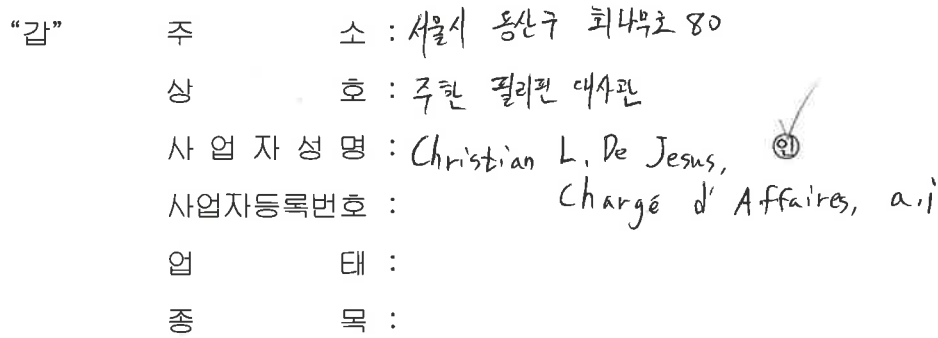 “갑” 주 소 : 서울시 용산구 회나무로 80
상 호 : 주한 필리핀 대사관
사 업 자 성 명 : Christian L. De Jesus, 인
사업자등록번호 : Chargé d' Affaires, a.i
업 태 :
종 목 :